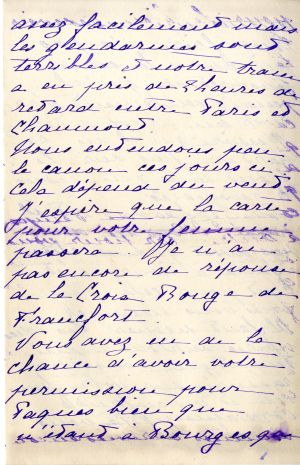 assez facilement mais
les gendarmes sont
terribles et notre train
a eu près de 2 heures de
retard entre Paris et
Chaumont.
Nous entendons peu
le canon ces jours ci
cela dépend du vent.
J'espère que la carte
pour votre femme
passera. Je n'ai
pas encore de réponse
de la Croix Rouge de
Francfort.
Vous avez eu de la
chance d'avoir votre
permission pour
Paques bien que
n'étant à Bourges que